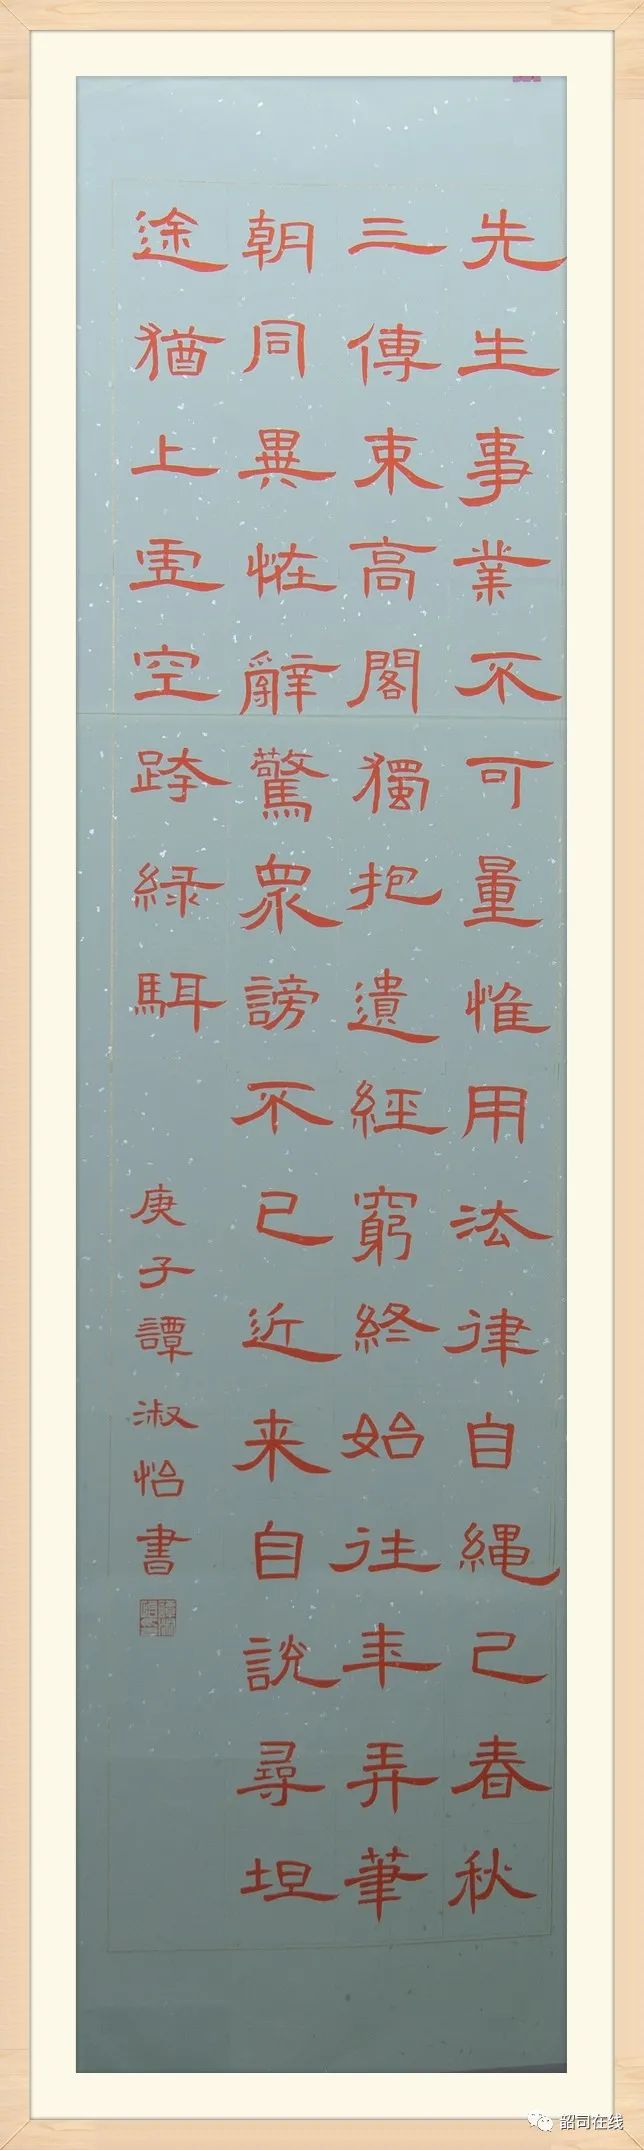 先生事業不可量惟用法律自繩己春秋
三傳束高閣獨抱遺經窮終始往年弄筆
朝同異恠辭驚衆謗不已近来自說尋坦
途猶上虛空跨綠駬
庚子譚淑怡書
韶司在线